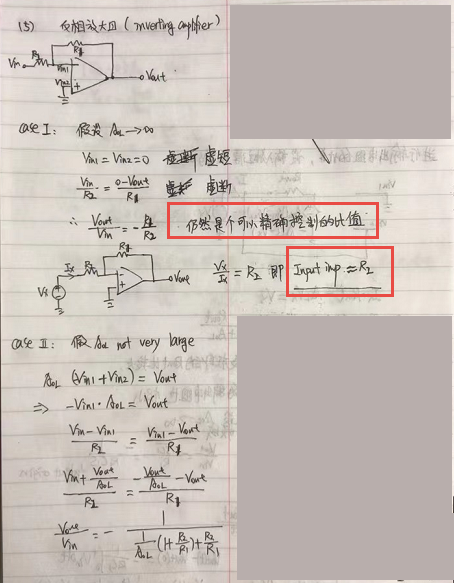 (5) 反相放大器 (inverting amplifier)
R1
Vin R2 Vin1
Vin2 Vout
case I: 假若 AoL → ∞
Vin1 = Vin2 = 0 虚短
Vin/R2 = (0-Vout)/R1 虚断
∴ Vout/Vin = -R1/R2 仍然是个可以精确控制的比值
R1
Ix R2
Vx Vout
Vx/Ix = R2 即 Input imp ≈ R2
case II: 假 AoL not very large
AoL (Vin1+Vin2) = Vout
⇒ -Vin1 · AoL = Vout
(Vin-Vin1)/R2 = (Vin1-Vout)/R1
(Vin + Vout/AoL)/R2 = (-Vout/AoL - Vout)/R1
Vout/Vin = - 1/(1/AoL (1+R2/R1) + R2/R1)